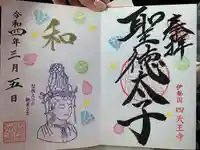 奉拝
聖徳太子
伊勢国 四天王寺
和
令和四年三月五日